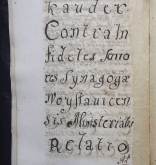 kauder
Contra In
fideles seno
res Synagogæ
Noystavicen
sis Ministeriales
Relatio